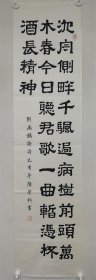 沈舟側畔千颿過病樹前頭萬
木春今日聽君歌一曲暫憑杯
酒長精神
劉禹錫詩句